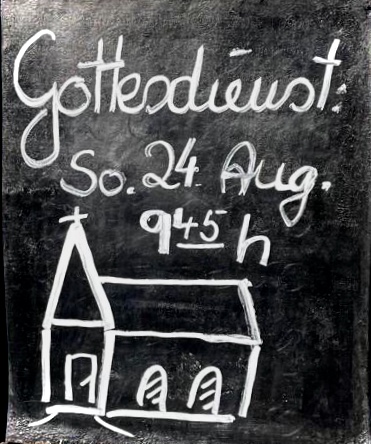 Gottesdienst:
So. 24. Aug.
9 45 h